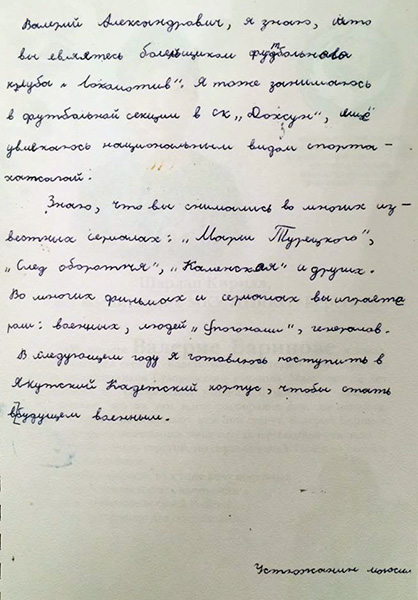 Валерий Александрович, я знаю, что
вы являетесь болельщиком футбольнова
клуба „Локомотив". Я тоже занимаюсь
в футбольной секции в СК „Дохсун", ещё
увлекаюсь национальным видом спорта –
хапсагай.
Знаю, что вы снимались во многих из-
вестных сериалах: „Марш Турецкого",
„След оборотня", „Каменская" и других.
Во многих фильмах и сериалах вы играете
роли: военных, людей „В погонами", генералов.
В следующем году я готовлюсь поступить в
Якутский Кадетский корпус, чтобы стать
в будущем военным.
Устюжанин